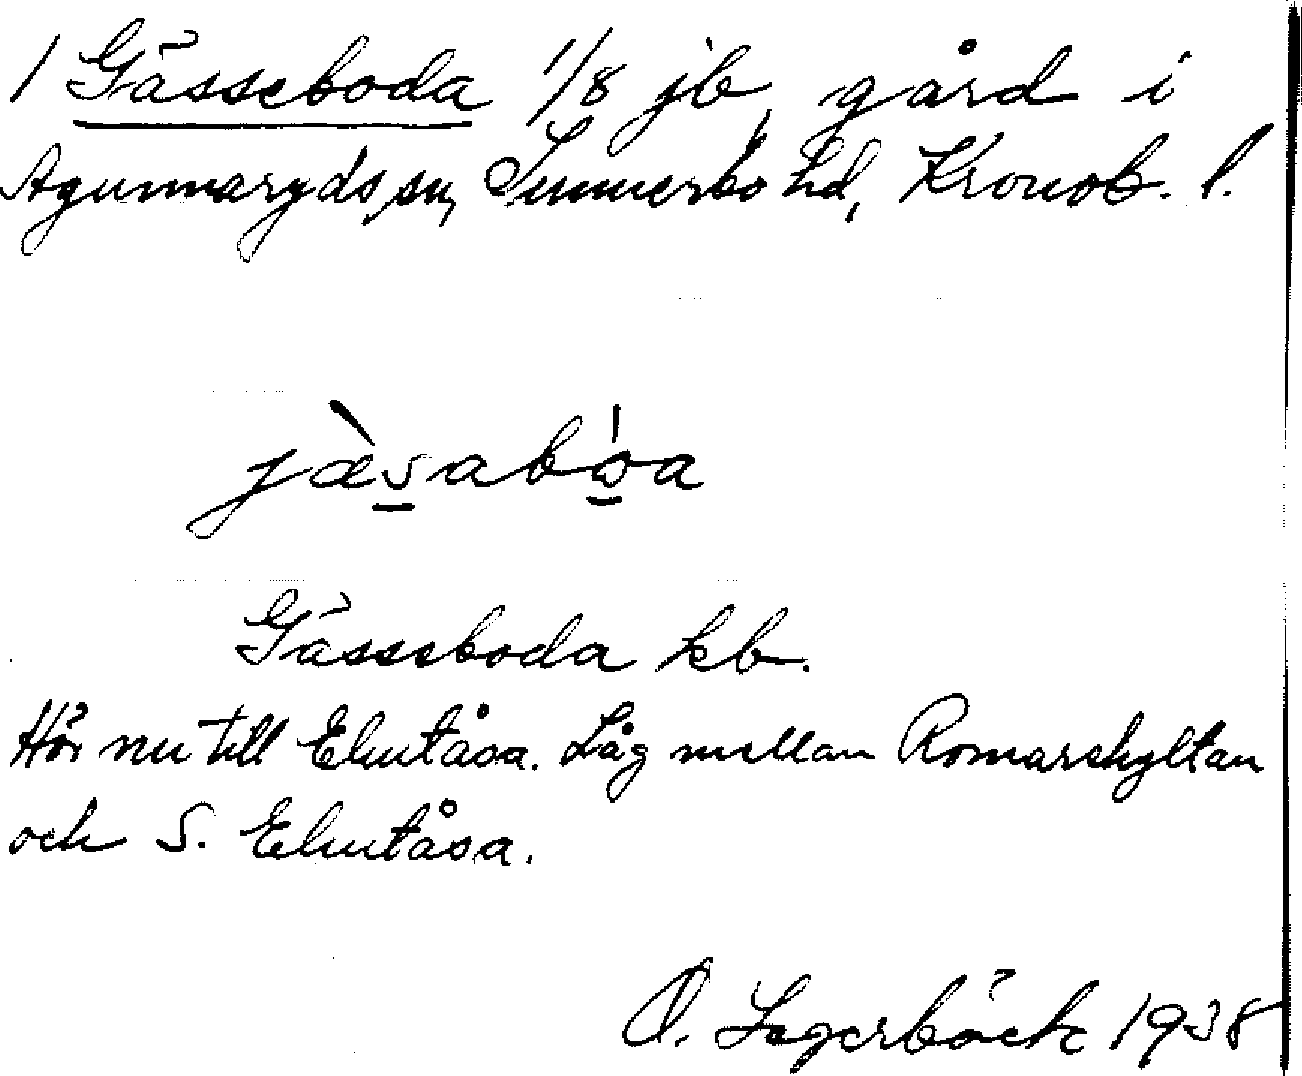 1 Gässeboda 1/8 jb, gård i
Agunnaryds sn, Sunnerbo hd, Kronob. l.
jæ̀sabóa
Gässeboda kb.
Hör nu till Elmtåsa. Låg mellan Romarehyltan
och S. Elmtåsa.
O. Lagerböck 1938